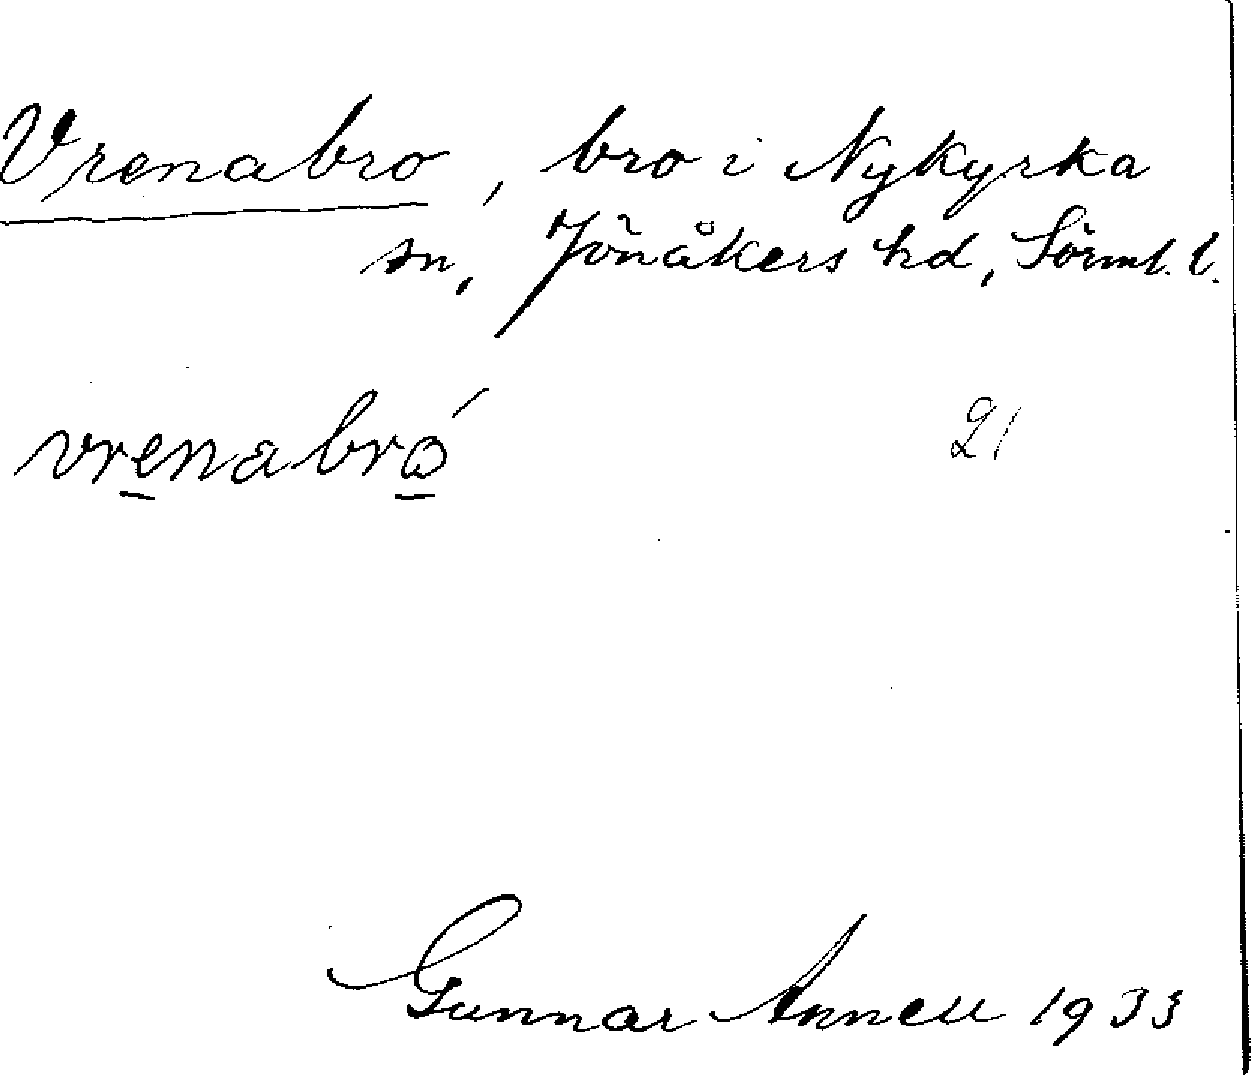 Vrenabro, bro i Nykyrka
sn, Jönåkers hd, Sörml. l.
vrenabró 21
Gunnar Annell 1933